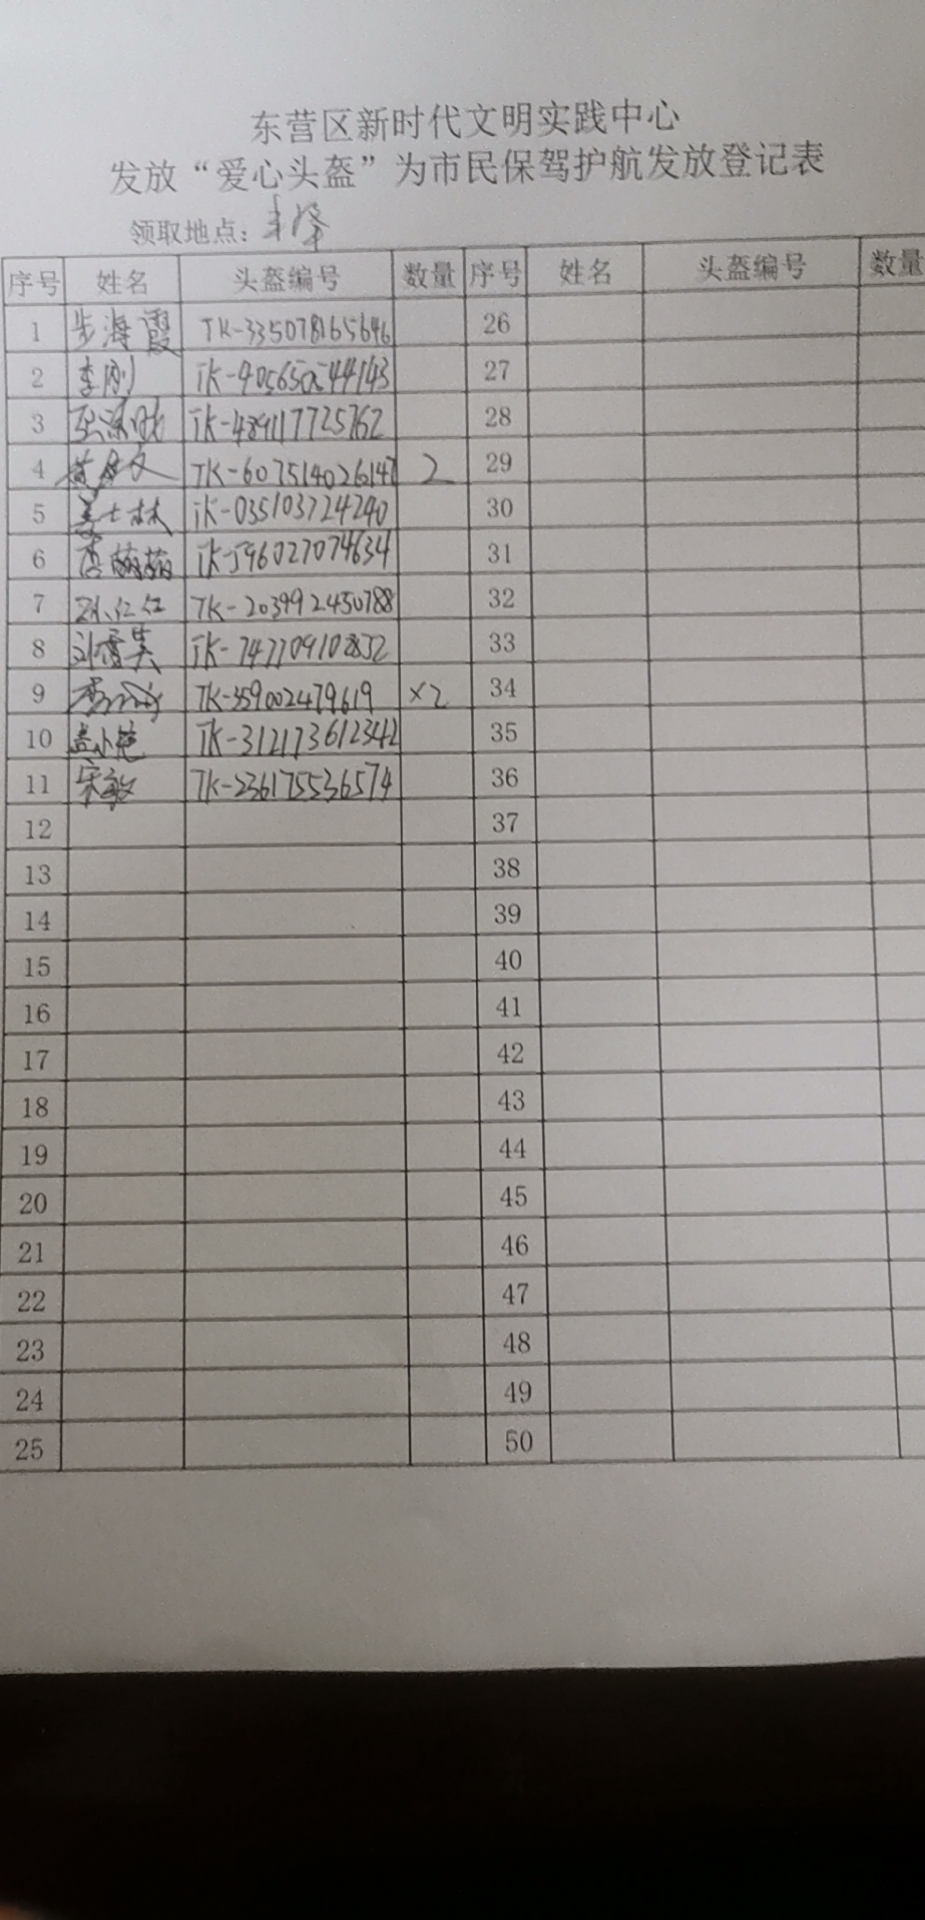 东营区新时代文明实践中心
发放“爱心头盔”为市民保驾护航发放登记表
领取地点：丰泽
序号 姓名 头盔编号 数量 序号 姓名 头盔编号 数量
1 步海霞 TK-335078165646 26
2 李刚 TK- 27
3 TK-489117725762 28
4 TK-607514026147 2 29
5 姜士林 TK-035103724240 30
6 李萌萌 TK-596027074634 31
7 孙红红 TK-203992450788 32
8 刘雪昊 TK-747709102832 33
9 TK-359002479619 ×2 34
10 TK-312173612342 35
11 宋敏 TK-236175536574 36
12 37
13 38
14 39
15 40
16 41
17 42
18 43
19 44
20 45
21 46
22 47
23 48
24 49
25 50